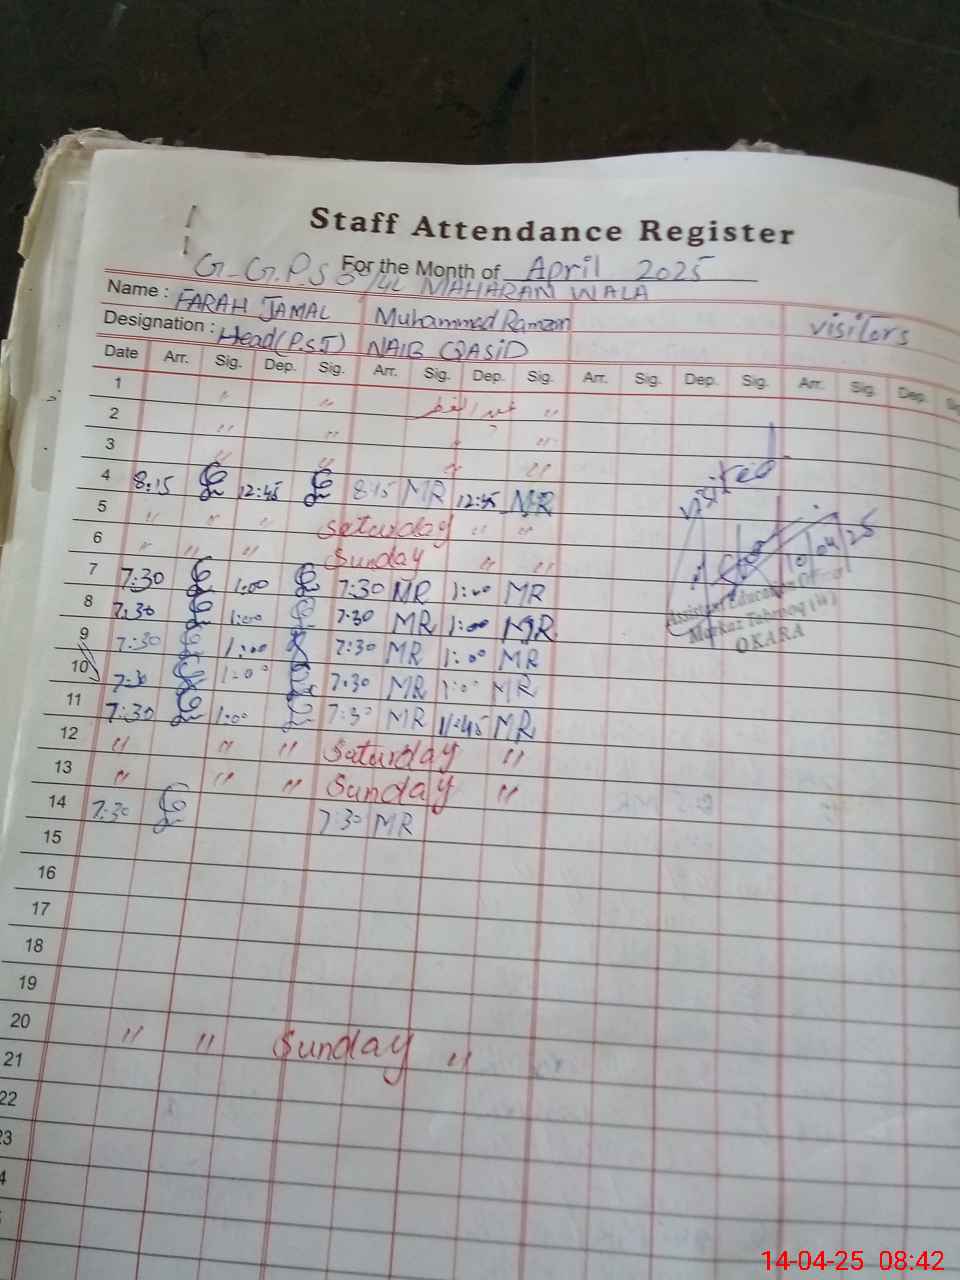 Staff Attendance Register
For the Month of April 2025
G.G.P.S 6/4L MAHARAN WALA
Name : FARAH JAMAL Muhammad Ramzan visitors
Designation : Head(P.S.T) NAIB QASID
Date Arr. Sig. Dep. Sig. Arr. Sig. Dep. Sig. Arr. Sig. Dep. Sig. Arr. Sig. Dep.
1 " " عید الفطر "
2 " " " "
3 " " " "
4 8:15 12:45 8:15 MR 12:45 MR
5 " " " Saturday " "
6 " " " Sunday " "
7 7:30 1:00 7:30 MR 1:00 MR
8 7:30 1:00 7:30 MR 1:00 MR
9 7:30 1:00 7:30 MR 1:00 MR
10 7:30 1:00 7:30 MR 1:00 MR
11 7:30 1:00 7:30 MR 11:45 MR
12 " " " Saturday "
13 " " " Sunday "
14 7:30 7:30 MR
15
16
17
18
19
20 " " Sunday "
21
22
23
visited
10/04/25
Assistant Education Officer
Markaz (W)
OKARA
14-04-25 08:42